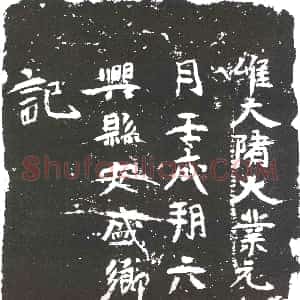 惟大隋大業元
月壬戌朔六
興縣安盛鄉
記
Shufapilao.COM